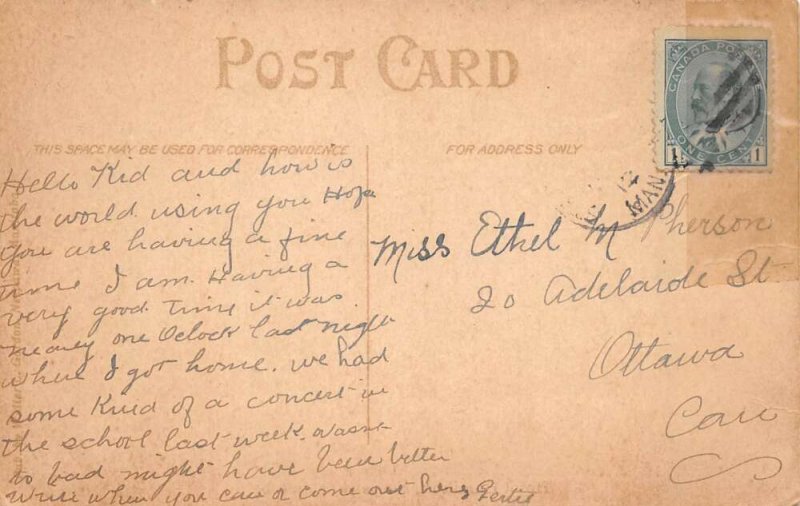 POST CARD
CANADA POSTAGE
ONE CENT
1 1
THIS SPACE MAY BE USED FOR CORRESPONDENCE
FOR ADDRESS ONLY
Hello Kid and how is
the world using you Hope
you are having a fine
time I am. Having a
very good time it was
neary one Oclock last night
when I got home. we had
some Kind of a concert in
the school last week. wasnt
to bad might have been better
write when you can or come out here Gertie
Miss Ethel McPherson
20 Adelaide St
Ottawa
Can
MAN